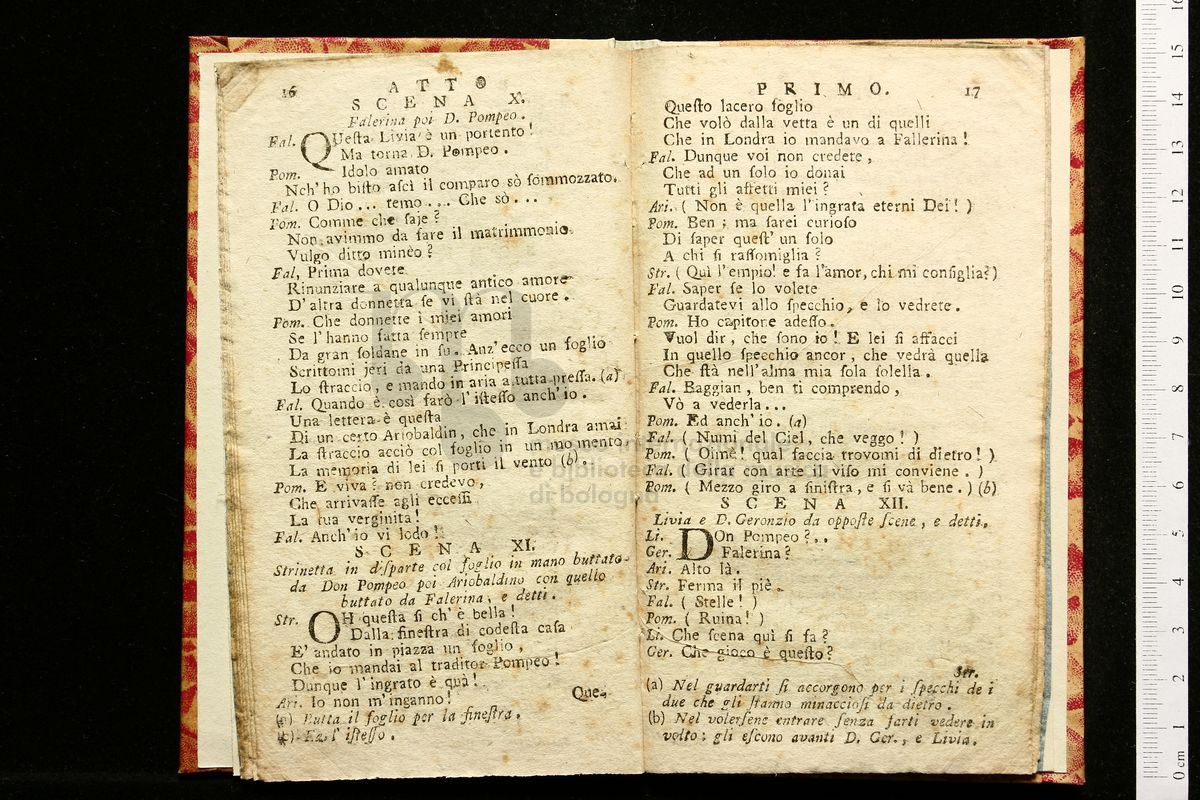 16 ATTO
SCENA X.
Falerina poi D. Pompeo.
Fal. QUeſta Livia è un portento!
Ma torna D. Pompeo.
Pom. Idolo amato
Nch' ho biſto aſcì il comparo sò ſommozzato.
Fal. O Dio... temo... Che sò...
Pom. Comme che ſaje?
Non avimmo da fare il matrimmonio
Vulgo ditto minèo?
Fal, Prima dovete
Rinunziare a qualunque antico amore
D'altra donnetta ſe vi ſtà nel cuore.
Pom. Che donnette i miei amori
Se l'hanno fatta ſempre
Da gran ſoldane in ſu. Anz' ecco un foglio
Scrittomi jeri da una Principeſſa
Lo ſtraccio, e mando in aria a tutta preſſa. (a)
Fal. Quando è così farò l'iſteſſo anch'io.
Una lettera è queſta
Di un certo Ariobaldin, che in Londra amai
La ſtraccio acciò col foglio in un momento,
La memoria di lei ſi porti il vento (b).
Pom. E viva? non credevo,
Che arrivaſſe agli ecceſſi
La tua verginita!
Fal. Anch'io vi lodo!
SCENA XI.
Strinetta in diſparte col foglio in mano buttato
da Don Pompeo poi Ariobaldino con quello
buttato da Falerina, e detti.
Str. OH queſta ſi ch'è bella!
Dalla fineſtra di codeſta caſa
E' andato in piazza un foglio,
Che io mandai al traditor Pompeo!
Dunque l'ingrato è quà!
Ari. Io non m'inganno!
Que-
(a) Butta il foglio per la fineſtra.
(b) Fa l'iſteſſo.
PRIMO. 17
Queſto lacero foglio
Che volò dalla vetta è un di quelli
Che in Londra io mandavo a Fallerina!
Fal. Dunque voi non credete,
Che ad un ſolo io donai
Tutti gli affetti miei?
Ari. ( Non è quella l'ingrata eterni Dei! )
Pom. Ben; ma ſarei curioſo
Di ſaper queſt'un ſolo
A chi ſi raſſomiglia?
Str. ( Quì l'empio! e fa l'amor, chi mi conſiglia?)
Fal. Saper ſe lo volete
Guardatevi allo ſpecchio, e lo vedrete.
Pom. Ho capitone adeſſo.
Vuol dir, che ſono io! E lei ſi affacci
In quello ſpecchio ancor, che vedrà quella
Che ſtà nell'alma mia ſola ſolella.
Fal. Baggian, ben ti comprendo,
Vò a vederla...
Pom. Ed anch'io. (a)
Fal. ( Numi del Ciel, che veggo! )
Pom. ( Oimè! qual faccia trovomi di dietro! )
Fal. ( Girar con arte il viſo mi conviene. )
Pom. ( Mezzo giro a ſiniſtra, e ſi và bene. ) (b)
SCENA XII.
Livia e D. Geronzio da oppoſte ſcene, e detti.
Li. DOn Pompeo?..
Ger. Falerina?
Ari. Alto là.
Str. Ferma il piè.
Fal. ( Stelle! )
Pom. ( Ruina! )
Li. Che ſcena quì ſi fa?
Ger. Che gioco è queſto?
Str.
(a) Nel guardarſi ſi accorgono per i ſpecchi de i
due che gli ſtanno minaccioſi da dietro.
(b) Nel volerſene entrare ſenza farſi vedere in
volto; gli eſcono avanti D. Ger., e Livia.